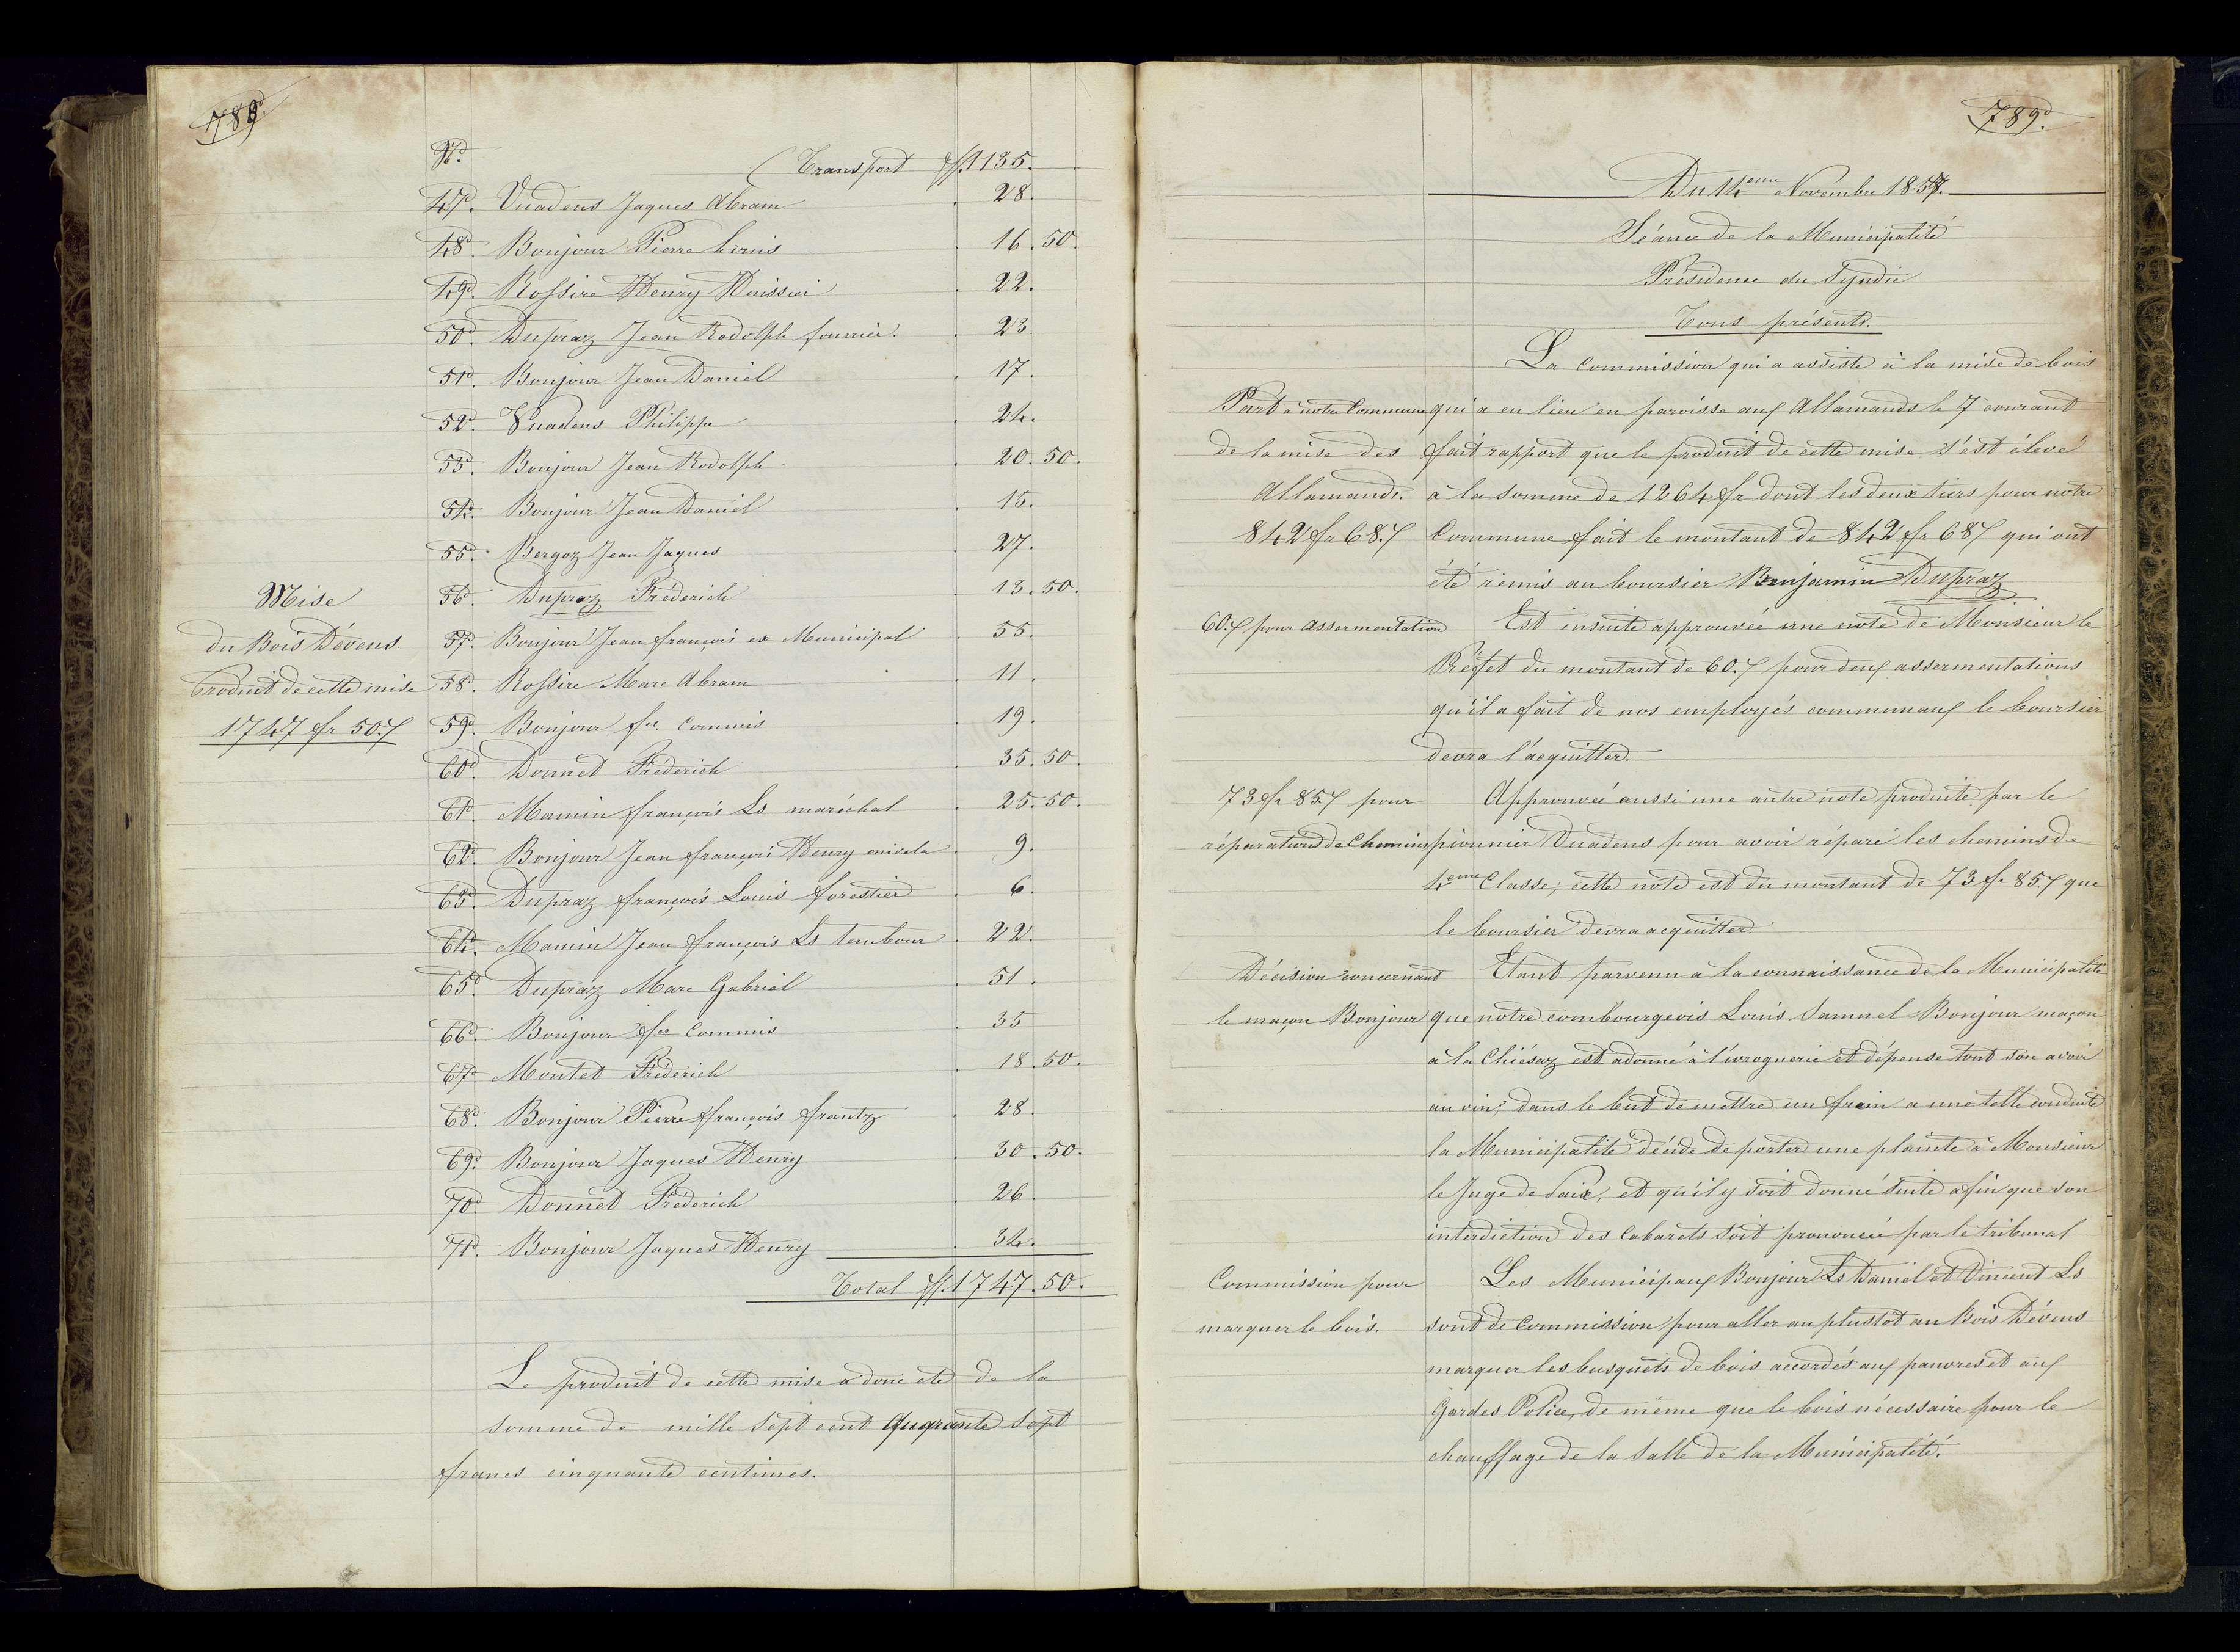 788.
N.º Transport ff. 1135.
47º. Vuadens Jaques Abram 28.
48º. Bonjour Pierre Louis 16.50.
49º. Rossire Henry Huissier 22.
50º. Dupraz Jean Rodolph fourrier. 23.
51º. Bonjour Jean Daniel 17.
52º. Vuadens Philippe 24.
53º. Bonjour Jean Rodolph 20.50.
54º. Bonjour Jean Daniel 15.
55º. Bergoz Jean Jaques 27.
56º. Dupraz Fréderich 13.50.
57º. Bonjour Jean françois ex Municipal 55.
58º. Rossire Marc Abram 11.
59º. Bonjour fs. Commis 19.
60º. Donnet Fréderich 35.50.
61º. Mamin françois Ls maréchal 25.50.
62º. Bonjour Jean françois Henry 9.
63º. Dupraz françois Louis forestier 6.
64º. Mamin Jean françois Ls tembour 22.
65º. Dupraz Marc Gabriel 51.
66º. Bonjour fs Commis 35
67º. Montet Fréderich 18.50.
68º. Bonjour Pierre françois frantz 28.
69º. Bonjour Jaques Henry 30.50.
70º. Donnet Fréderich 26.
71º. Bonjour Jaques Henry 34.
Total ff. 1747.50.
Mise
du Bois Dévens.
Produit de cette mise
1747 fr 50.c
Le produit de cette mise a donc été de la
somme de mille sept cent quarante sept
francs cinquante centimes.
789º.
Du 14eme Novembre 1857.
Séance de la Municipalité
Présidence du Syndic
Tous présents.
La Commission qui a assisté à la mise de bois
Part à notre Commune qui a eu lieu en paroisse aux Allamands le 7 courant
de la mise des fait rapport que le produit de cette mise s'est élevé
Allamands. à la somme de 1264 fr dont les deux tiers pour notre
842 fr 68.c Commune fait le montant de 842 fr 68c qui ont
été remis au boursier Benjamin Dupraz
60.c pour assermentation Est insuite approuvée une note de Monsieur le
Préfet du montant de 60.c pour deux assermentations
qu'il a fait de nos employés communaux le boursier
devra l'acquitter.
73 fr 85c pour Approuvée aussi une autre note produite par le
réparations de Chemins pionnier Vuadens pour avoir réparé les chemins de
4eme Classe; cette note est du montant de 73 fr 85.c que
le boursier devra acquitter.
Décision concernant Etant parvenu à la connaissance de la Municipalité
le maçon Bonjour que notre combourgeois Louis Samuel Bonjour maçon
à la Chiésaz est adonné à l'ivrognerie et dépense tout son avoir
au vin; dans le but de mettre un frein a une telle conduite
la Municipalité décide de porter une plainte à Monsieur
le Juge de Paix, et qu'il y soit donné suite afin que son
interdiction des Cabarets soit prononcée par le tribunal
Commission pour Les Municipaux Bonjour Ls Daniel et Vincent Ls
marquer le bois. sont de Commission pour aller au plustôt au Bois Dévens
marquer les busquets de bois accordés aux pauvres et aux
Gardes Police, de même que le bois nécessaire pour le
chauffage de la Salle de la Municipalité.